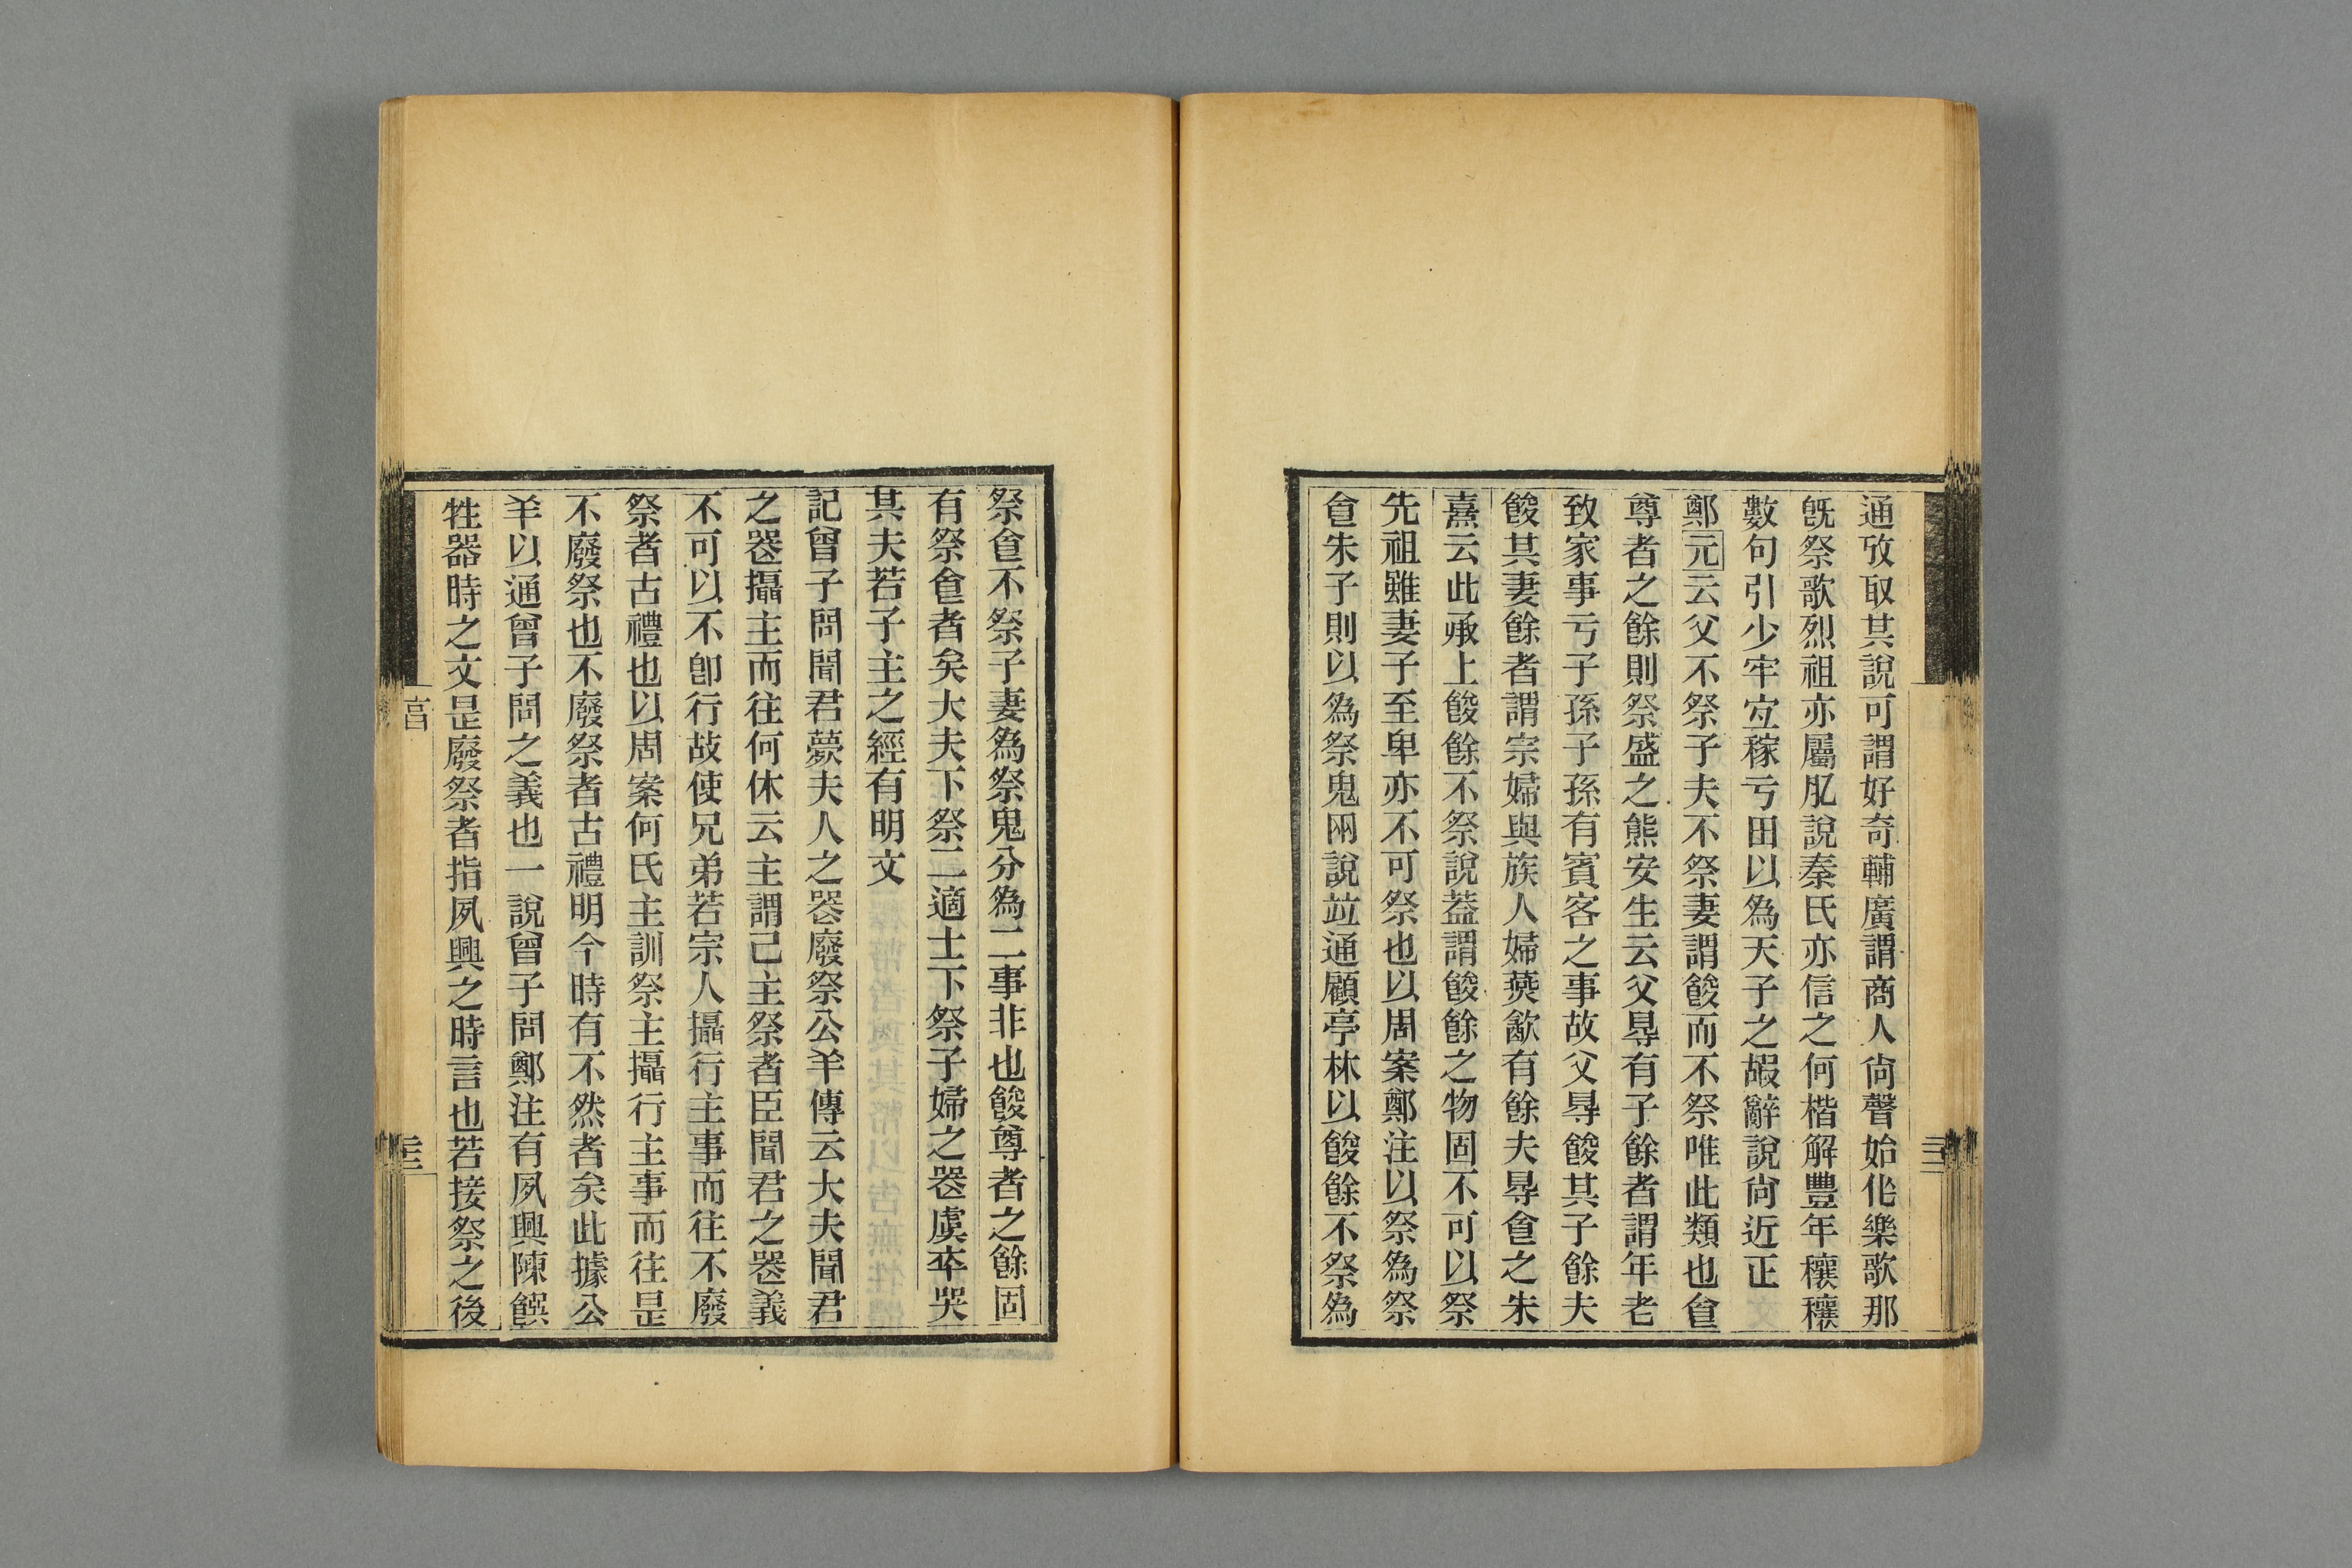 通攷取其說可謂好奇輔廣謂商人尙聲始佁樂歌那
旣祭歌烈祖亦屬肊說秦氏亦信之何楷解豐年穰穰
數句引少牢宐稼亏田以為天子之嘏辭說尙近正
鄭元云父不祭子夫不祭妻謂餕而不祭唯此類也𠊊
尊者之餘則祭盛之熊安生云父㝵有子餘者謂年老
致家事亏子孫子孫有賓客之事故父㝵餕其子餘夫
餕其妻餘者謂宗婦與族人婦燕㱃有餘夫㝵𠊊之朱
熹云此承上餕餘不祭說葢謂餕餘之物固不可以祭
先祖雖妻子至卑亦不可祭也以周案鄭注以祭為祭
𠊊朱子則以為祭鬼㒳說竝通顧亭林以餕餘不祭為
祭𠊊不祭子妻為祭鬼分為二事非也餕尊者之餘固
有祭𠊊者矣大夫下祭二適士下祭子婦之䘮虞卒哭
其夫若子主之經有明文
記曾子問聞君薨夫人之䘮廢祭公羊傳云大夫聞君
之䘮攝主而往何休云主謂己主祭者臣聞君之䘮義
不可以不卽行故使兄弟若宗人攝行主事而往不廢
祭者古禮也以周案何氏主訓祭主攝行主事而往昰
不廢祭也不廢祭者古禮明今時有不然者矣此據公
羊以通曾子問之義也一說曾子問鄭注有夙興陳饌
牲器時之文昰廢祭者指夙興之時言也若接祭之後